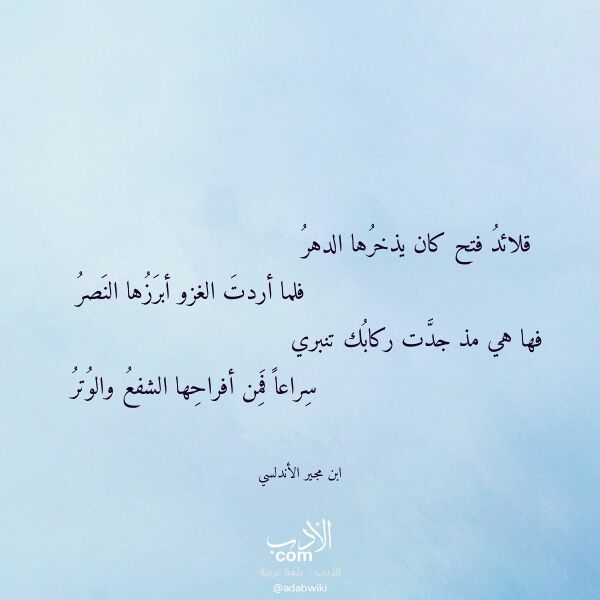 قلائدُ فتح كان يذخرُها الدهرُ
فلما أردتَ الغزو أبرَزُها النَصرُ
فها هي مذ جدَّت ركابُك تنبري
سِراعاً فَمِن أفراحِها الشفعُ والوُترُ
ابن مجير الأندلسي
الأدب
com
الأدب .. بلغة عربية
@adabwiki